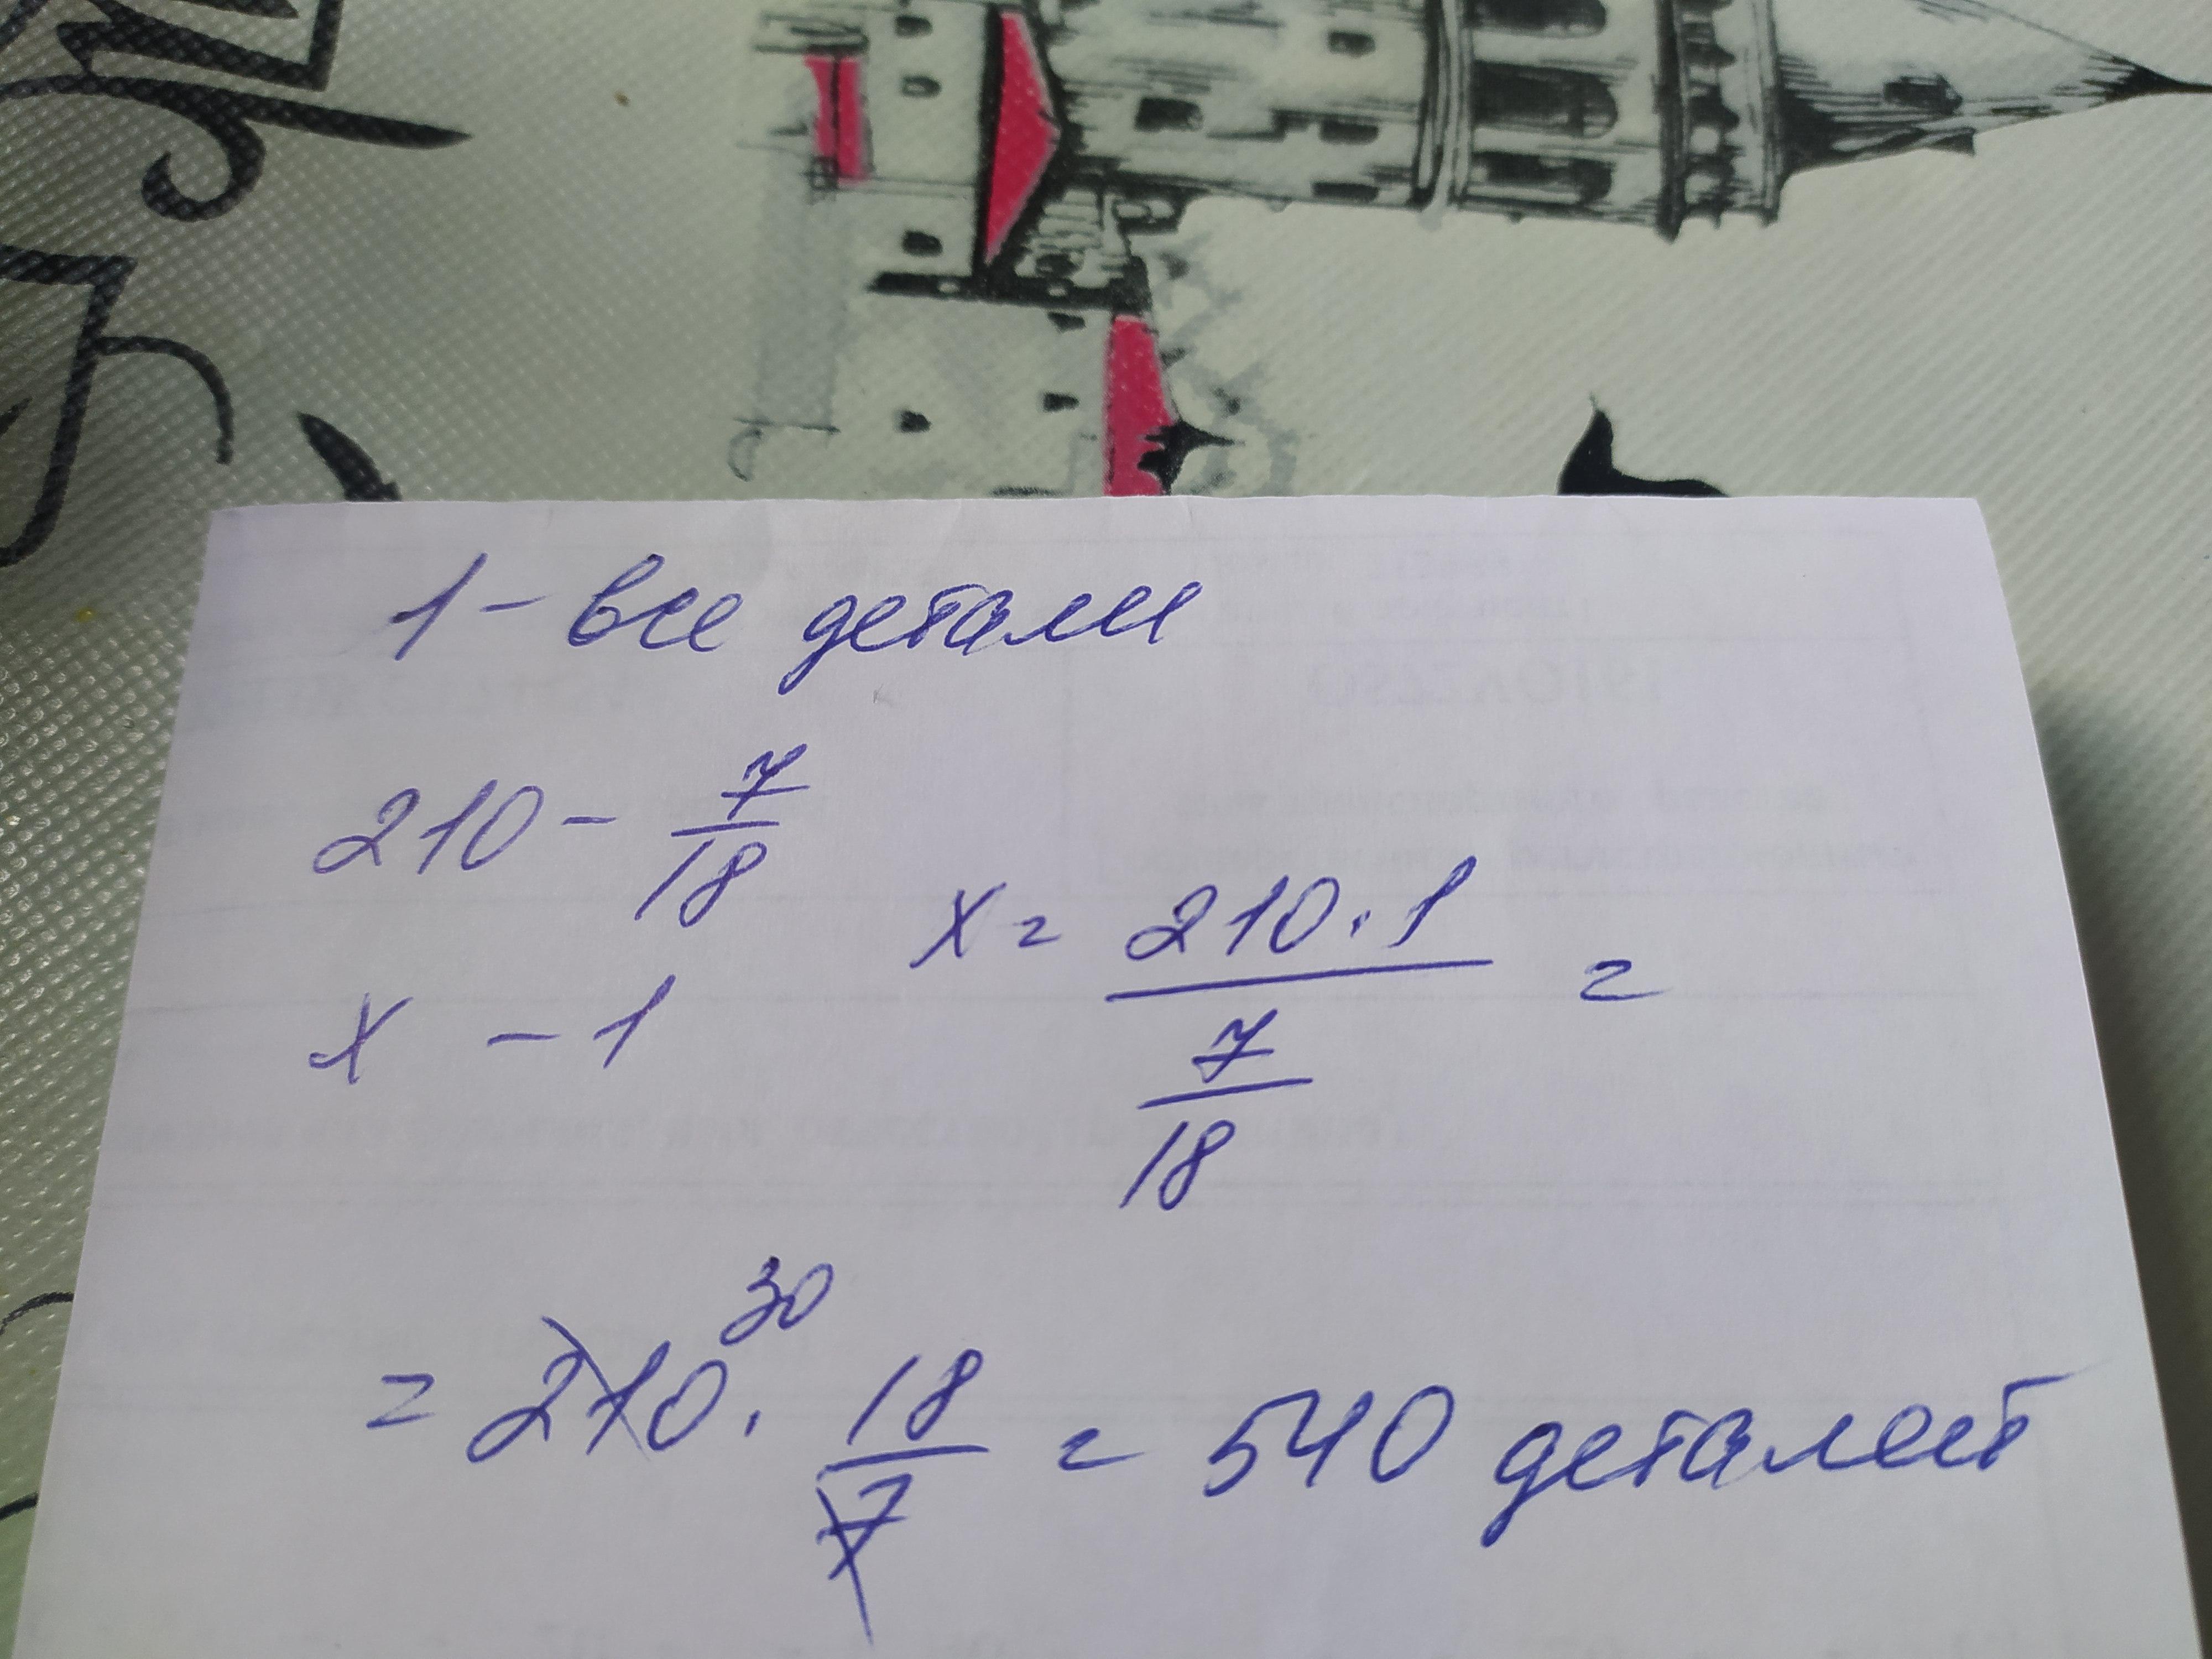 1 - все детали
210 - 7/18
x = 210 · 1 / 7/18 =
x - 1
30
= 210 · 18/7 = 540 деталей